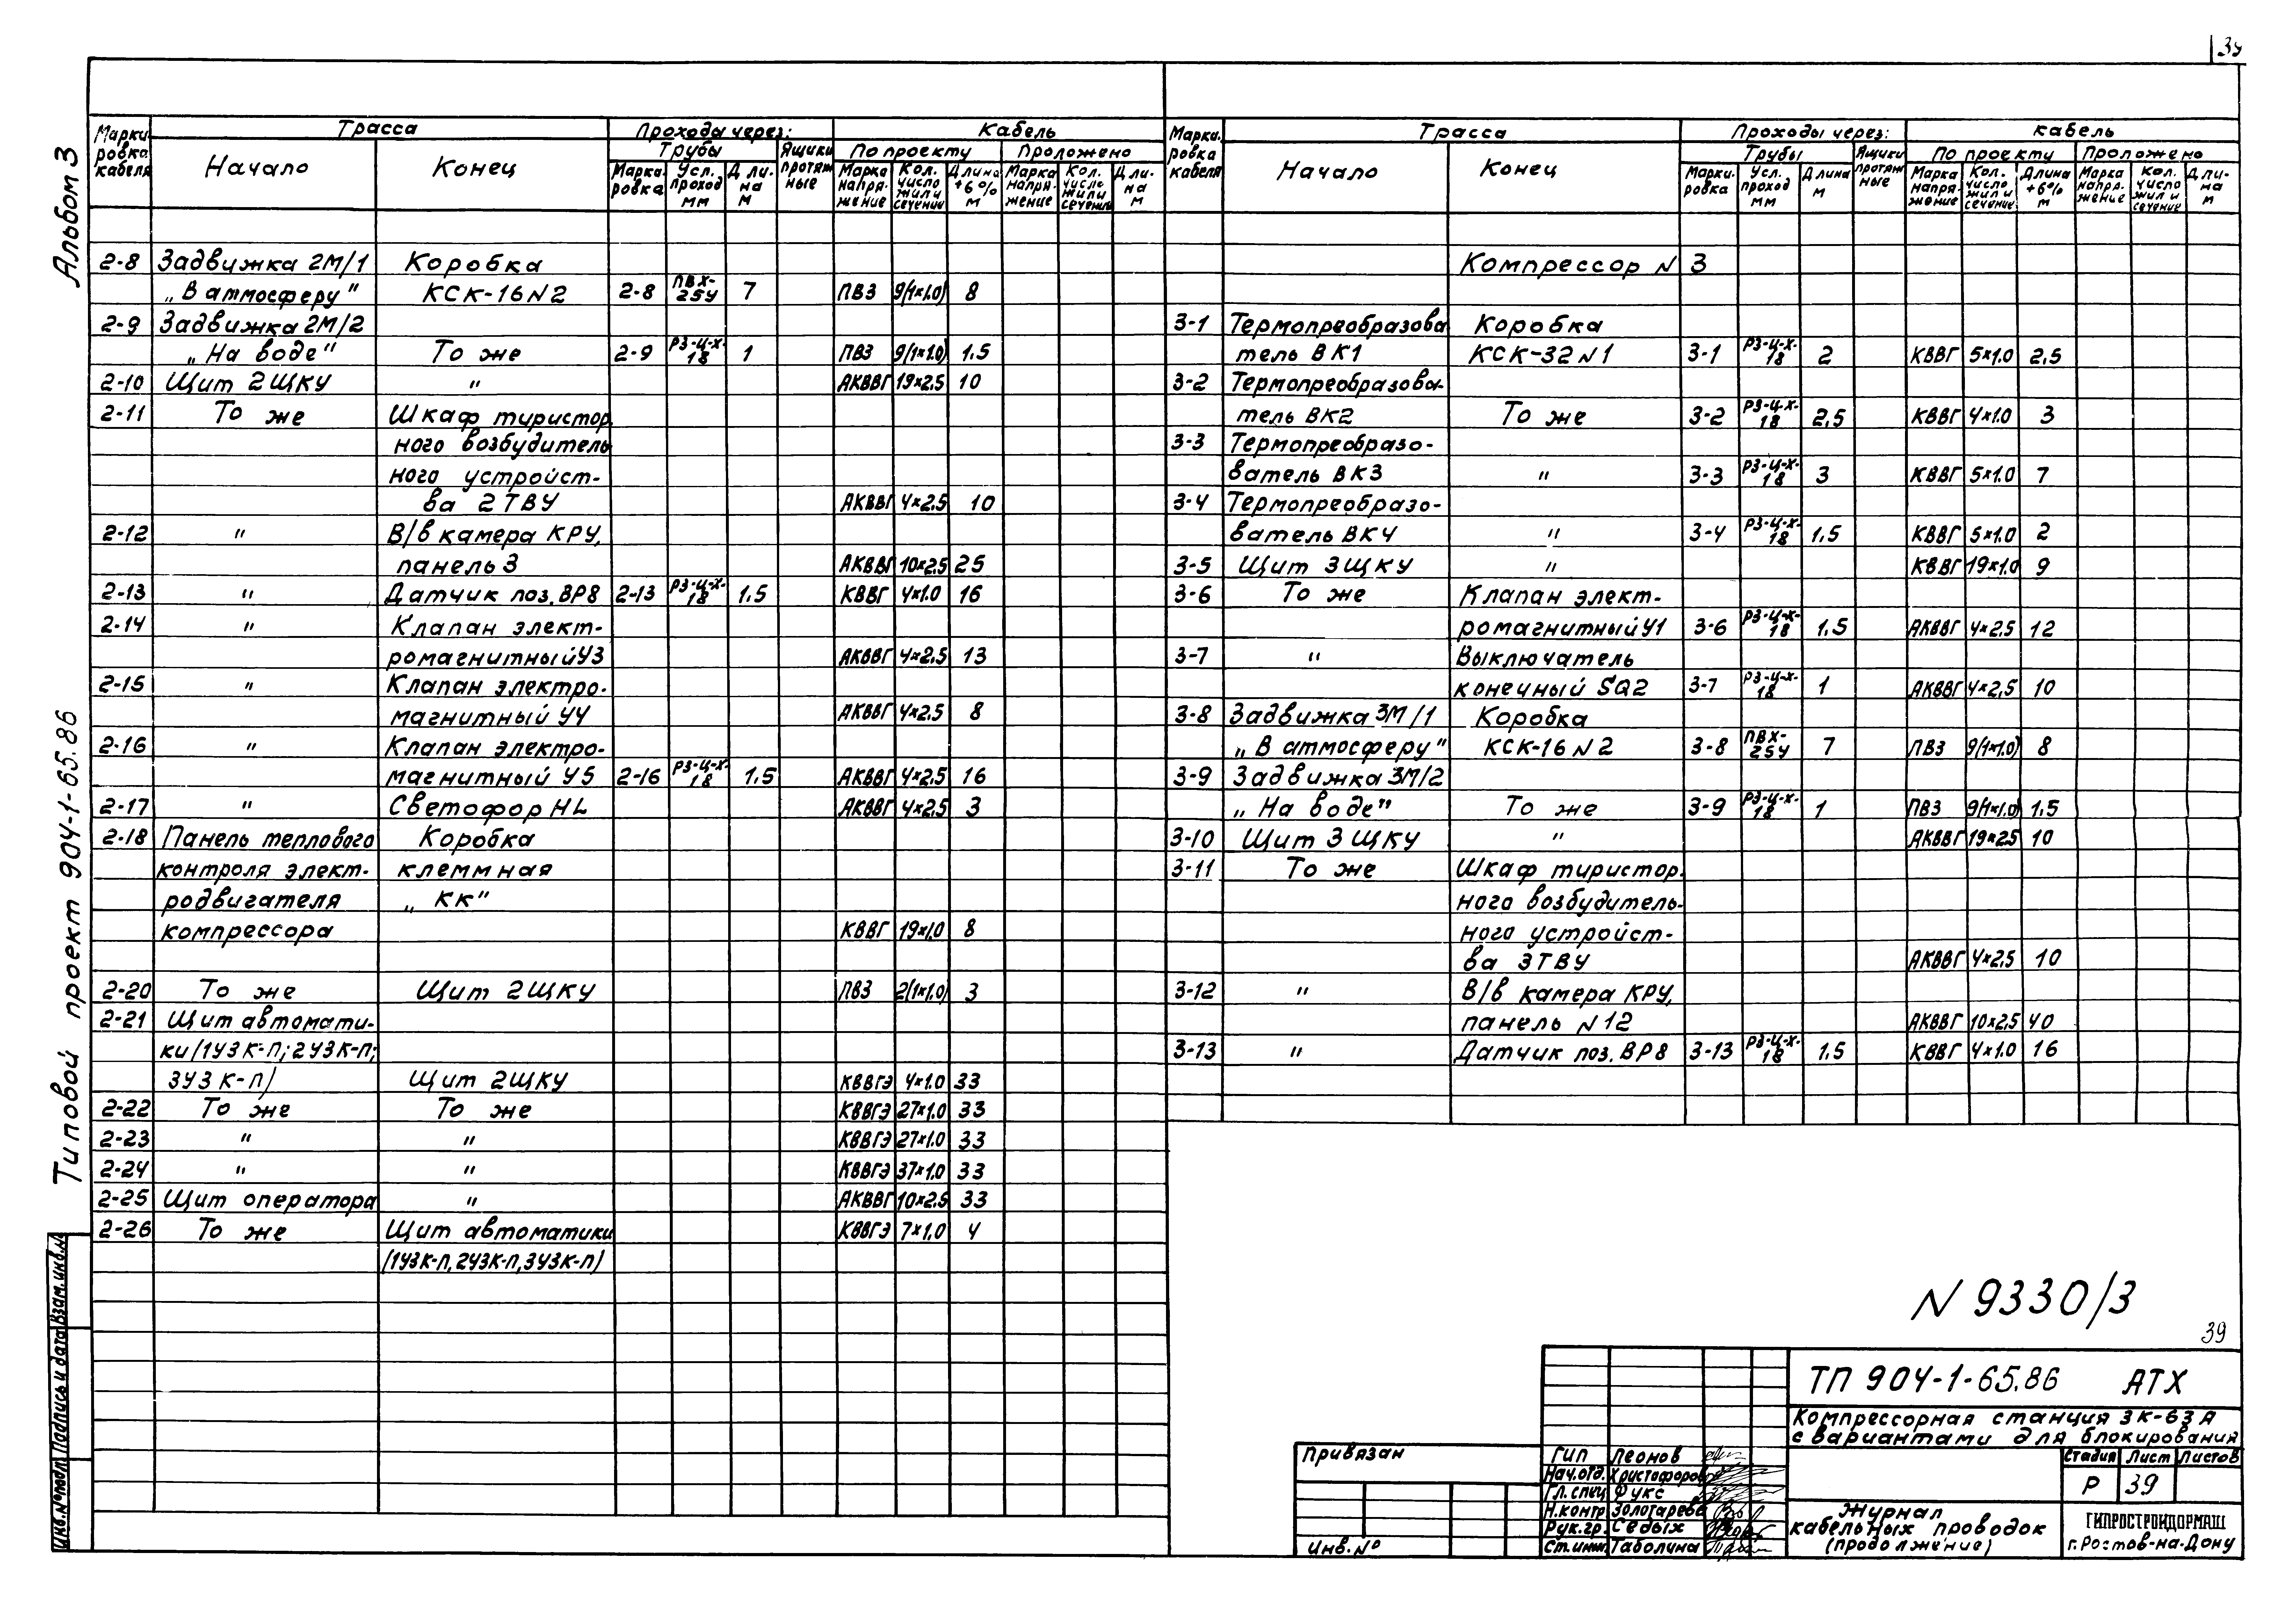 39
Альбом 3
Типовой проект 904-1-65.86
Взам.инв.№
Подпись и дата
Инв.№подл.
Марки-ровка кабеля | Трасса | Проходы через: | Кабель
Начало | Конец | Трубы | Ящики протяж ные | По проекту | Проложено
Марки-ровка | Усл. проход мм | Дли-на м | Марка напря-жение | Кол. число жил и сечение | Длина +6% м | Марка напря-жение | Кол. число жил и сечение | Дли-на м
2-8 Задвижка 2М/1 Коробка
„В атмосферу" КСК-16 N2 2-8 ПВХ-25У 7 ПВ3 9(1×1.0) 8
2-9 Задвижка 2М/2
„На воде" То же 2-9 РЗ-Ц-Х-18 1 ПВ3 9(1×1.0) 1.5
2-10 Щит 2ЩКУ " АКВВГ 19×2.5 10
2-11 То же Шкаф тиристор
ного возбудитель
ного устройст-
ва 2ТВУ АКВВГ 4×2.5 10
2-12 " В/в камера КРУ,
панель 3 АКВВГ 10×2.5 25
2-13 " Датчик поз. ВР8 2-13 РЗ-Ц-Х-18 1.5 КВВГ 4×1.0 16
2-14 " Клапан элект-
ромагнитный У3 АКВВГ 4×2.5 13
2-15 " Клапан электро-
магнитный У4 АКВВГ 4×2.5 8
2-16 " Клапан электро-
магнитный У5 2-16 РЗ-Ц-Х-18 1.5 АКВВГ 4×2.5 16
2-17 " Светофор HL АКВВГ 4×2.5 3
2-18 Панель теплового Коробка
контроля элект- клеммная
родвигателя „КК"
компрессора КВВГ 19×1.0 8
2-20 То же Щит 2ЩКУ ПВ3 2(1×1.0) 3
2-21 Щит автомати-
ки/1УЗК-П; 2УЗК-П;
3УЗК-П/ Щит 2ЩКУ КВВГЭ 4×1.0 33
2-22 То же То же КВВГЭ 27×1.0 33
2-23 " " КВВГЭ 27×1.0 33
2-24 " " КВВГЭ 37×1.0 33
2-25 Щит оператора " АКВВГ 10×2.5 33
2-26 То же Щит автоматики КВВГЭ 7×1.0 4
/1УЗК-П, 2УЗК-П, 3УЗК-П/
Марки-ровка кабеля | Трасса | Проходы через: | кабель
Начало | Конец | Трубы | Ящики протяж ные | По проекту | Проложено
Марки-ровка | Усл. проход мм | Длина м | Марка напря-жение | Кол. число жил и сечение | Длина +6% м | Марка напря-жение | Кол. число жил и сечение | Дли-на м
Компрессор N 3
3-1 Термопреобразова Коробка
тель ВК1 КСК-32 N1 3-1 РЗ-Ц-Х-18 2 КВВГ 5×1.0 2.5
3-2 Термопреобразова-
тель ВК2 То же 3-2 РЗ-Ц-Х-18 2.5 КВВГ 4×1.0 3
3-3 Термопреобразо-
ватель ВК3 " 3-3 РЗ-Ц-Х-18 3 КВВГ 5×1.0 7
3-4 Термопреобразо-
ватель ВК4 " 3-4 РЗ-Ц-Х-18 1.5 КВВГ 5×1.0 2
3-5 Щит 3ЩКУ " КВВГ 19×1.0 9
3-6 То же Клапан элект-
ромагнитный У1 3-6 РЗ-Ц-Х-18 1.5 АКВВГ 4×2.5 12
3-7 " Выключатель
конечный SQ2 3-7 РЗ-Ц-Х-18 1 АКВВГ 4×2.5 10
3-8 Задвижка 3М/1 Коробка
„В атмосферу" КСК-16 N2 3-8 ПВХ-25У 7 ПВ3 9(1×1.0) 8
3-9 Задвижка 3М/2
„На воде" То же 3-9 РЗ-Ц-Х-18 1 ПВ3 9(1×1.0) 1.5
3-10 Щит 3ЩКУ " АКВВГ 19×2.5 10
3-11 То же Шкаф тиристор.
ного возбудитель-
ного устройст-
ва 3ТВУ АКВВГ 4×2.5 10
3-12 " В/в камера КРУ,
панель N12 АКВВГ 10×2.5 40
3-13 " Датчик поз. ВР8 3-13 РЗ-Ц-Х-18 1.5 КВВГ 4×1.0 16
N 9330/3
39
Привязан
Инв.№
ГИП Леонов
Нач.отд. Христофоров
Гл.спец. Фукс
Н.контр. Золотарева
Рук.гр. Седых
Ст.инж. Таболина
ТП 904-1-65.86 АТХ
Компрессорная станция 3К-63А
с вариантами для блокирования
Стадия Лист Листов
Р 39
Журнал
кабельных проводок
(продолжение)
ГИПРОСТРОЙДОРМАШ
г.Ростов-на-Дону